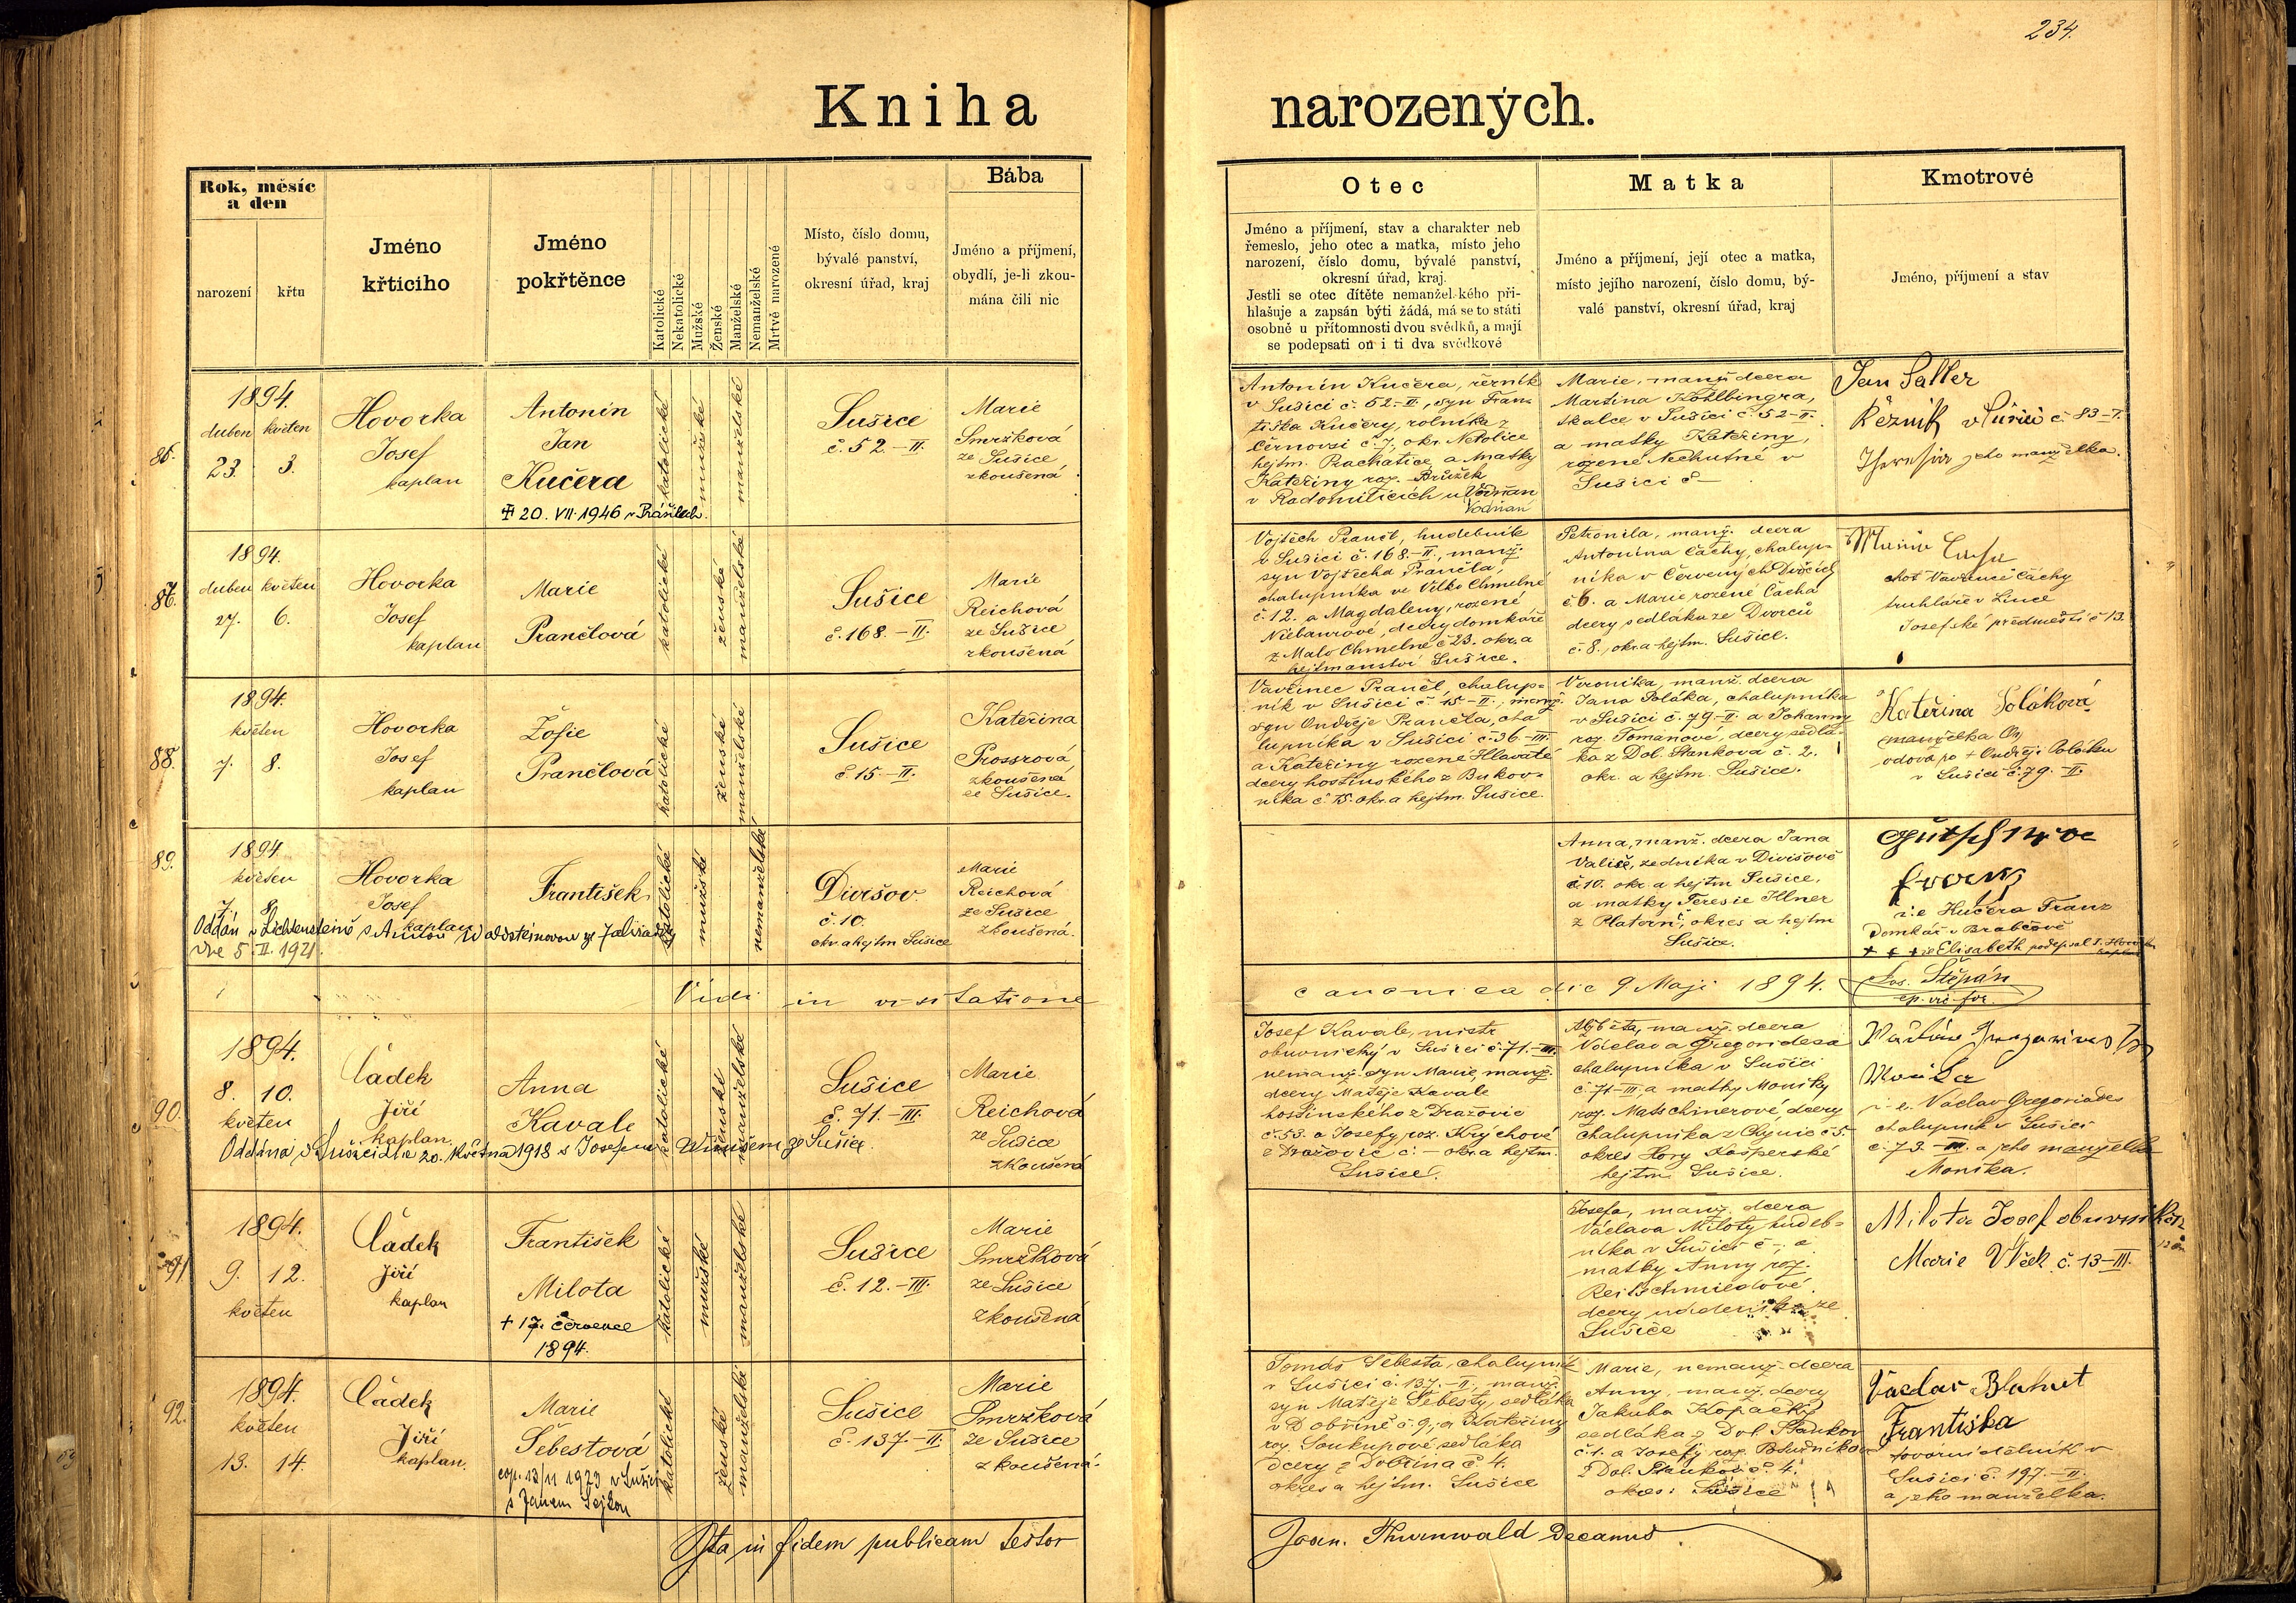 234.
Kniha narozených.
Rok, měsíc
a den
narození
křtu
Jméno
křtícího
Jméno
pokřtěnce
Katolické
Nekatolické
Mužské
Ženské
Manželské
Nemanželské
Mrtvě narozené
Místo, číslo domu,
bývalé panství,
okresní úřad, kraj
Bába
Jméno a příjmení,
obydlí, je-li zkou-
mána čili nic
Otec
Jméno a příjmení, stav a charakter neb
řemeslo, jeho otec a matka, místo jeho
narození, číslo domu, bývalé panství,
okresní úřad, kraj.
Jestli se otec dítěte nemanželského při-
hlašuje a zapsán býti žádá, má se to státi
osobně u přítomnosti dvou svědků, a mají
se podepsati on i ti dva svědkové
Matka
Jméno a příjmení, její otec a matka,
místo jejího narození, číslo domu, bý-
valé panství, okresní úřad, kraj
Kmotrové
Jméno, příjmení a stav
86.
1894.
duben květen
23. 3.
Hovorka
Josef
kaplan
Antonín
Jan
Kučera
20. VII. 1946 v Prášilech.
katolické
mužské
manželské
Sušice
č. 52.-II.
Marie
Smržková
ze Sušice
zkoušená
Antonín Kučera, řezník
v Sušici č. 52.-II., syn Fran-
tiška Kučery, rolníka z
Černovsi č. 7, okr. Netolice
hejtm. Prachatice, a Matky
Kateřiny roz. Brůžek
v Radomilicích u Vodňan
Vodňan
Marie, manž. dcera
Martina Köhlbingra,
skalce v Sušici č. 52-II.
a matky Kateřiny,
rozené Nechutné v
Sušici č –
Jan Saller
Řezník v Sušici č. 83-I.
Theresia jeho manželka.
87.
1894.
duben květen
27. 6.
Hovorka
Josef
kaplan
Marie
Prančlová
katolické
ženské
manželské
Sušice
č. 168.-II.
Marie
Reichová
ze Sušice
zkoušená
Vojtěch Prančl, hudebník
v Sušici č. 168.-II., manž.
syn Vojtěcha Prančla
chalupníka ve Velko Chmelné
č. 12. a Magdaleny, rozené
Niebaurové, dcery domkáře
z Malo Chmelné č 23. okr. a
hejtmanství Sušice.
Petronila, manž. dcera
Antonína Čáchy, chalup-
níka v Červených Dvorcích
č. 6. a Marie rozené Čácha
dcery sedláka ze Dvorců
č. 8., okr. a hejtm. Sušice.
choť Vavřince Čáchy
truhláře v Lince
Josefské předměstí č 13.
88.
1894.
květen
7. 8.
Hovorka
Josef
kaplan
Žofie
Prančlová
katolické
ženské
manželské
Sušice
č. 15.-II.
Kateřina
Prossrová
zkoušená
ze Sušice.
Vavřinec Prančl, chalup-
ník v Sušici č. 15-II., manž.
syn Ondřeje Prančla, cha
lupníka v Sušici č. 36-III.
a Kateřiny rozené Hlavaté
dcery hostinského z Bukov-
níka č. 15. okr. a hejtm. Sušice.
Veronika, manž. dcera
Jana Poláka, chalupníka
v Sušici č. 79.-II. a Johanny
roz. Tomanové, dcery sedlá-
ka z Dol. Staňkova č. 2.
okr. a hejtm. Sušice.
Kateřina Poláková
manželka On
vdova po + Ondřeji Poláku
v Sušici č. 79.-II.
89.
1894
květen
7. 8.
Hovorka
Josef
kaplan
František
Oddán v Lichtensteině s Annou Waldsteinovou
dne 5. II. 1921.
katolické
mužské
nemanželské
Divišov
č. 10.
okr. a hejtm Sušice
Marie
Reichová
ze Sušice
zkoušená.
Anna, manž. dcera Jana
Valiče, zedníka v Divišově
č. 10. okr. a hejtm Sušice,
a matky Teresie Illner
z Platoře, okres a hejtm
Sušice.
i.e Kučera Franz
Domkář v Brabčově
+ + + i.e Elisabeth podepsal J. Hovorka
kaplan
Vidi in visitatione canonica die 9. Maji 1894. Jos. Štěpán
ep. vic. for.
90.
1894.
8. 10.
květen
Čádek
Jiří
kaplan.
Anna
Kavale
Oddána v Sušici dne 20. května 1918 s Josefem ze Sušice.
katolické
ženské
manželské
Sušice
č. 71.-III.
Marie
Reichová
ze Sušice
zkoušená
Josef Kavale, mistr
obuvnický v Sušici č. 71.-III.
nemanž. syn Marie, manž.
dcery Matěje Kavale
hostinského z Dražovic
č. 53. a Josefy roz. Krýchové
z Dražovic č. – okr. a hejtm.
Sušice.
Alžběta, manž. dcera
Václava Gregoridesa
chalupníka v Sušici
č. 71-III. a matky Moniky
roz. Matschinerové, dcery
chalupníka z Chynic č 5.
okres Hory Kašperské
hejtm. Sušice.
Monika
i. e. Václav Gregoriades
chalupník v Sušici
č. 73.-III. a jeho manželka
Monika.
91.
1894.
9. 12.
květen
Čádek
Jiří
kaplan
František
Milota
+ 17. července
1894.
katolické
mužské
manželské
Sušice
č. 12.-III.
Marie
Smržková
ze Sušice
zkoušená
Josefa, manž. dcera
Václava Miloty hudeb-
níka v Sušici č –, a
matky Anny roz.
Reitschmiedové
dcery nádeníka ze
Sušice
Milota Josef obuvník
Marie Vlček č. 13-III.
92.
1894.
květen
13. 14.
Čádek
Jiří
kaplan.
Marie
Šebestová
cop. 13/11 1923 v Sušici
s Janem
katolické
ženské
manželské
Sušice
č. 137.-II.
Marie
Smržková
ze Sušice
zkoušená.
Tomáš Šebesta, chalupník
v Sušici č. 137.-II. manž.
syn Matěje Šebesty, sedláka
v Dobříně č. 9, a Kateřiny
roz. Soukupové sedláka
dcery z Dobřína č. 4.
okres a hejtm. Sušice
Marie, nemanž. dcera
Anny, manž. dcery
Jakuba Kopačky
sedláka z Dol Staňkov
č. 1. a Josefy roz.
z Dol. Staňkova č. 4.
okres: Sušice
Václav Blahut
Františka
tovární dělník v
Sušici č. 197.-II.
a jeho manželka.
Ita in fidem publicam testor Joan. Thurnwald Decanus